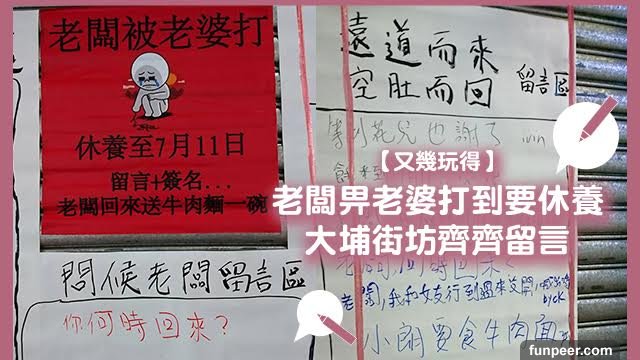 老闆被老婆打
休養至7月11日
留言+簽名...
老闆回來送牛肉麵一碗
問候老闆留言區
你何時回來?
遠道而來
空肚而回
留言區
等到花兒也謝了
【又幾玩得】
老闆畀老婆打到要休養
大埔街坊齊齊留言
老闆,我和女友行到過來又關,
小朗要食牛肉面
funpeer.com